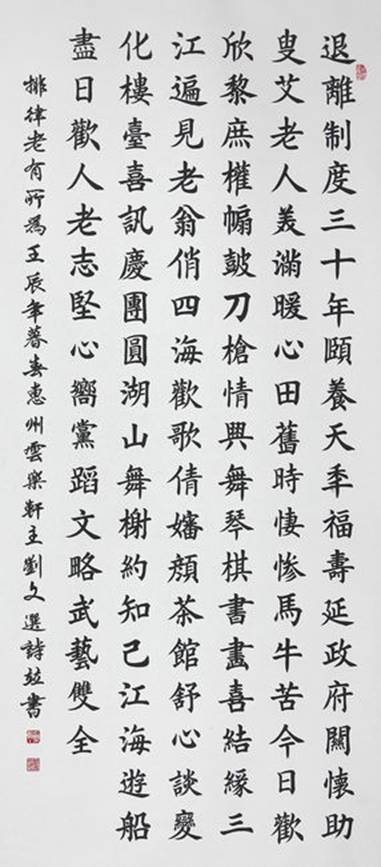 退離制度三十年頤養天秊福壽延政府關懷助
叟艾老人美滿暖心田舊時悽慘馬牛苦今日歡
欣黎庶權皷刀槍情興舞琴棋書畫喜結緣三
江遍見老翁俏四海歡歌倩嬸顏茶館舒心談變
化樓臺喜訊慶團圓湖山舞榭約知己江海遊船
盡日歡人老志堅心嚮黨蹈文略武藝雙全
排律老有所為壬辰年暮春惠州雲樂軒主劉文選詩竝書